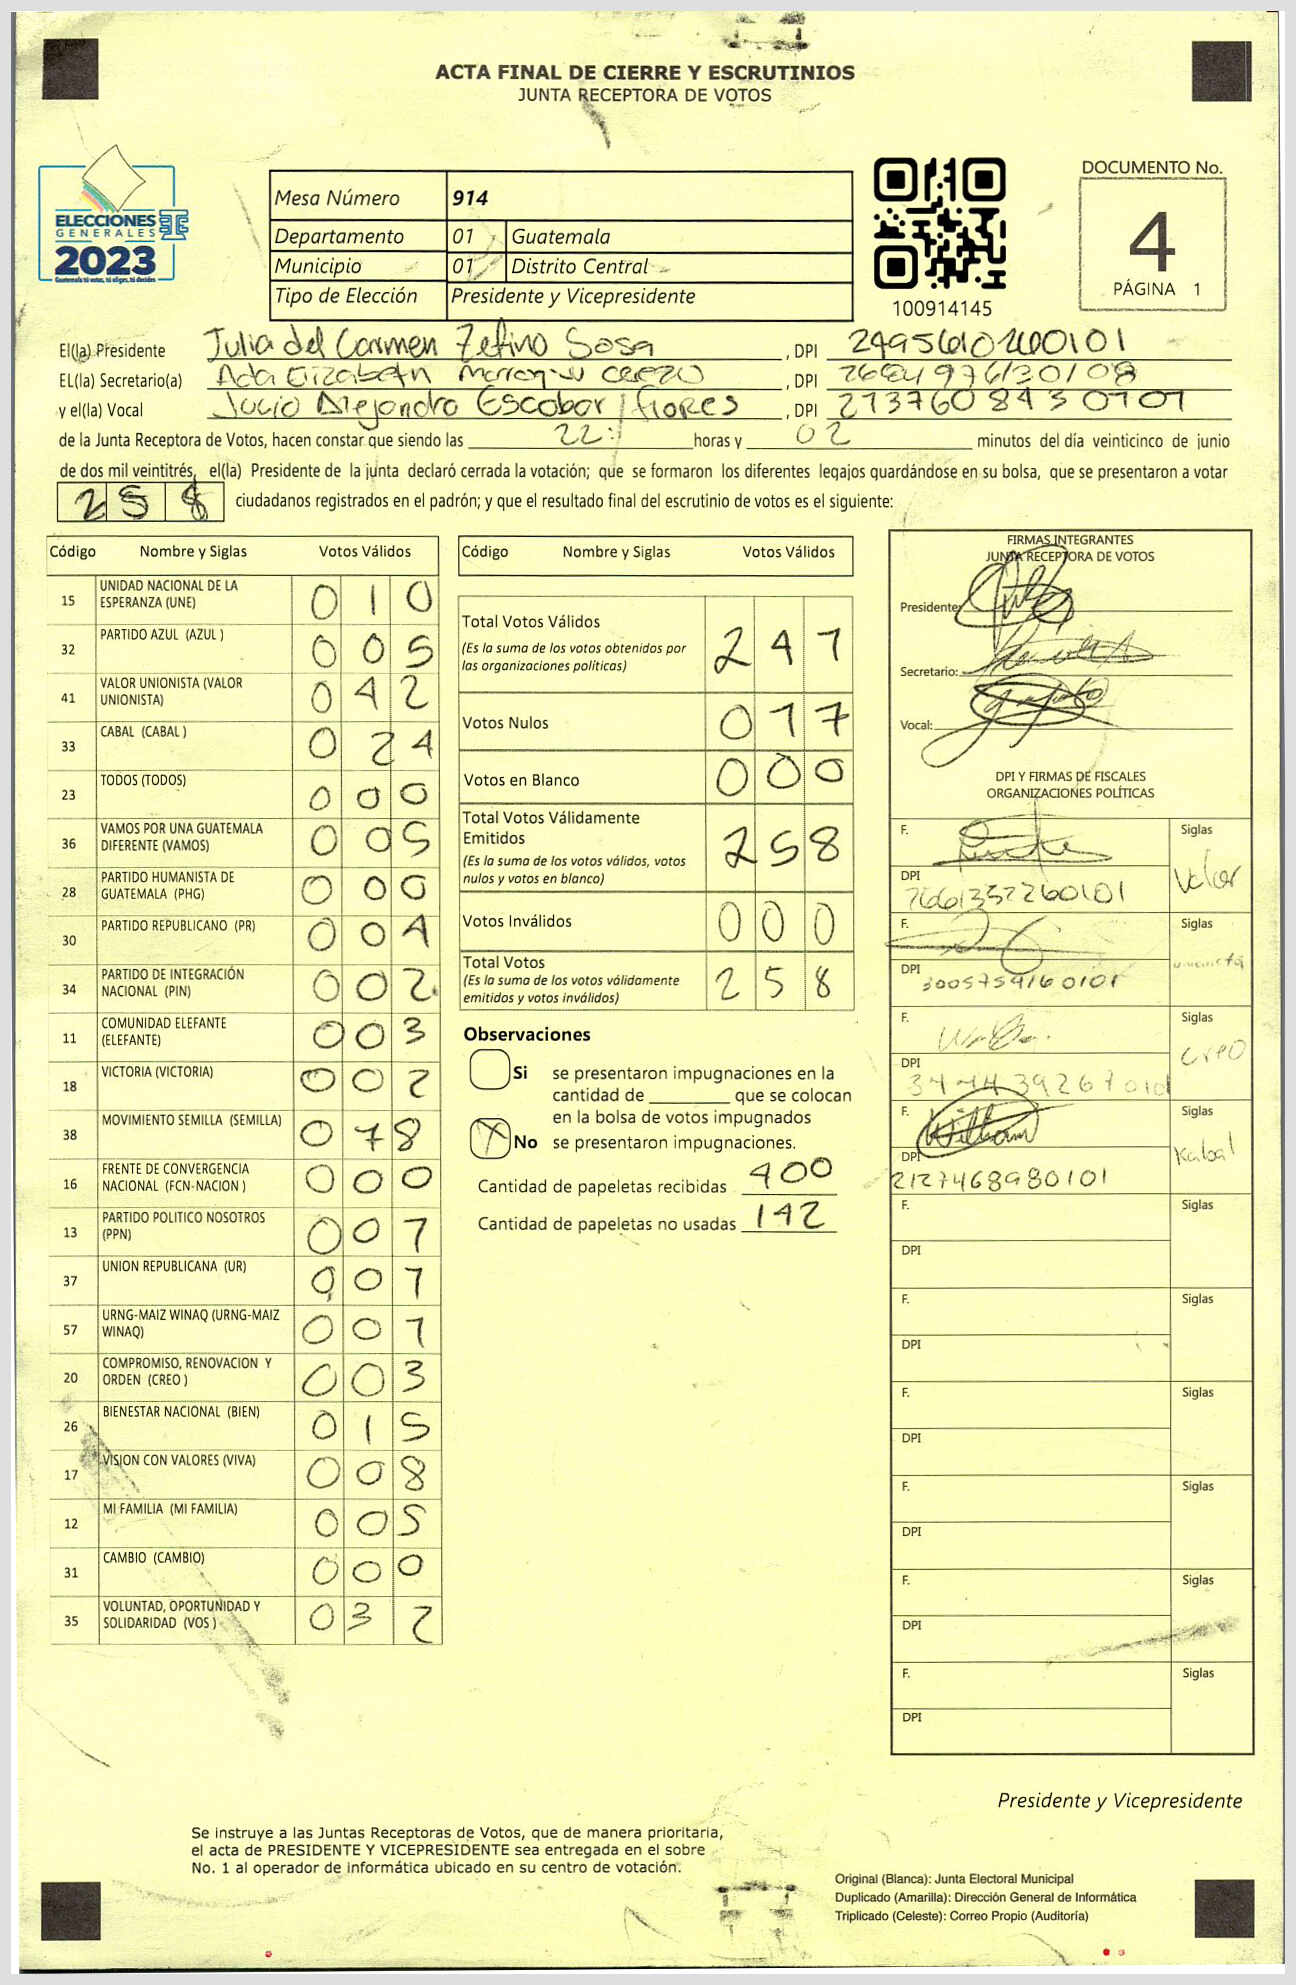 ACTA FINAL DE CIERRE Y ESCRUTINIOS
JUNTA RECEPTORA DE VOTOS
ELECCIONES
GENERALES
2023
Guatemala tú votas, tú eliges, tú decides
Mesa Número 914
Departamento 01 Guatemala
Municipio 01 Distrito Central
Tipo de Elección Presidente y Vicepresidente
100914145
DOCUMENTO No.
4
PÁGINA 1
El(la) Presidente Julia del Carmen Zefino Sosa, DPI
EL(la) Secretario(a) Ada Elizabeth, DPI
y el(la) Vocal Julio Alejandro Escobar Flores, DPI 2737608430101
de la Junta Receptora de Votos, hacen constar que siendo las 22: horas y 02 minutos del día veinticinco de junio
de dos mil veintitrés, el(la) Presidente de la junta declaró cerrada la votación; que se formaron los diferentes legajos guardándose en su bolsa, que se presentaron a votar
258 ciudadanos registrados en el padrón; y que el resultado final del escrutinio de votos es el siguiente:
Código Nombre y Siglas Votos Válidos
15 UNIDAD NACIONAL DE LA ESPERANZA (UNE) 010
32 PARTIDO AZUL (AZUL ) 005
41 VALOR UNIONISTA (VALOR UNIONISTA) 042
33 CABAL (CABAL ) 024
23 TODOS (TODOS) 000
36 VAMOS POR UNA GUATEMALA DIFERENTE (VAMOS) 005
28 PARTIDO HUMANISTA DE GUATEMALA (PHG) 000
30 PARTIDO REPUBLICANO (PR) 004
34 PARTIDO DE INTEGRACIÓN NACIONAL (PIN) 002
11 COMUNIDAD ELEFANTE (ELEFANTE) 003
18 VICTORIA (VICTORIA) 002
38 MOVIMIENTO SEMILLA (SEMILLA) 078
16 FRENTE DE CONVERGENCIA NACIONAL (FCN-NACION ) 000
13 PARTIDO POLITICO NOSOTROS (PPN) 001
37 UNION REPUBLICANA (UR) 001
57 URNG-MAIZ WINAQ (URNG-MAIZ WINAQ) 007
20 COMPROMISO, RENOVACION Y ORDEN (CREO ) 003
26 BIENESTAR NACIONAL (BIEN) 015
17 VISION CON VALORES (VIVA) 008
12 MI FAMILIA (MI FAMILIA) 005
31 CAMBIO (CAMBIO) 000
35 VOLUNTAD, OPORTUNIDAD Y SOLIDARIDAD (VOS ) 032
Código Nombre y Siglas Votos Válidos
Total Votos Válidos 247
(Es la suma de los votos obtenidos por
las organizaciones políticas)
Votos Nulos 011
Votos en Blanco 000
Total Votos Válidamente
Emitidos 258
(Es la suma de los votos válidos, votos
nulos y votos en blanco)
Votos Inválidos 000
Total Votos 258
(Es la suma de los votos válidamente
emitidos y votos inválidos)
Observaciones
Si se presentaron impugnaciones en la
cantidad de ________ que se colocan
en la bolsa de votos impugnados
X No se presentaron impugnaciones.
Cantidad de papeletas recibidas 400
Cantidad de papeletas no usadas 142
FIRMAS INTEGRANTES
JUNTA RECEPTORA DE VOTOS
Presidente:
Secretario:
Vocal:
DPI Y FIRMAS DE FISCALES
ORGANIZACIONES POLÍTICAS
F. Siglas
DPI Valor
2661352260101
F. Siglas
DPI
3005759160101
F. Siglas
DPI Creo
F. William Siglas
DPI Kabal
2127468980101
F. Siglas
DPI
F. Siglas
DPI
F. Siglas
DPI
F. Siglas
DPI
F. Siglas
DPI
F. Siglas
DPI
Presidente y Vicepresidente
Se instruye a las Juntas Receptoras de Votos, que de manera prioritaria,
el acta de PRESIDENTE Y VICEPRESIDENTE sea entregada en el sobre
No. 1 al operador de informática ubicado en su centro de votación.
Original (Blanca): Junta Electoral Municipal
Duplicado (Amarilla): Dirección General de Informática
Triplicado (Celeste): Correo Propio (Auditoría)